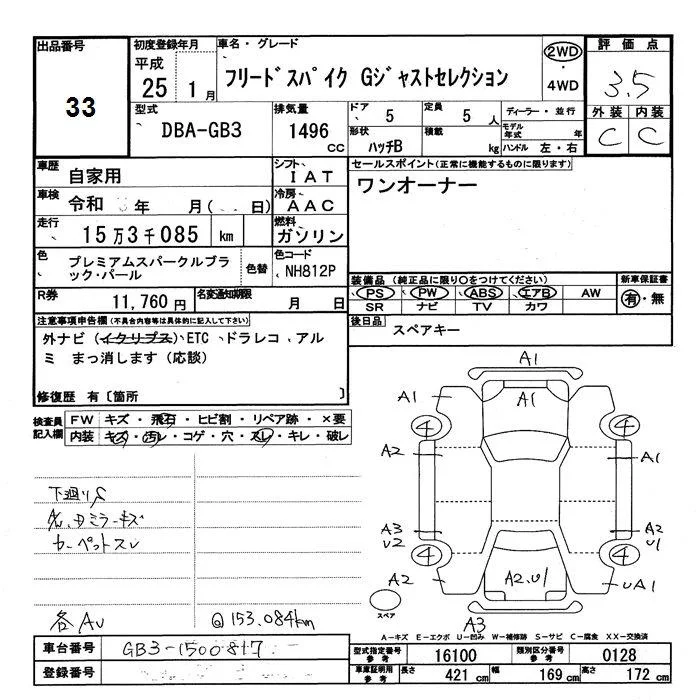 出品番号
33
初度登録年月
平成
25 1月
車名・グレード
フリードスパイク Gジャストセレクション
2WD
・
4WD
評価点
3.5
型式
DBA-GB3
排気量
1496
cc
ドア
5
定員
5 人
形状
ハッチB
積載
kg
ディーラー・並行
モデル年式 年
ハンドル 左・右
外装 内装
C C
車歴
自家用
シフト
IAT
車検
令和 年 月( 日)
冷房
AAC
走行
15万3千085 km
燃料
ガソリン
色
プレミアムスパークルブラック・パール
色替
色コード
NH812P
R券
11,760円
名変通知期限
月 日
セールスポイント(正常に機能するものに限ります)
ワンオーナー
装備品 (純正品に限り○をつけてください)
新車保証書
PS PW ABS エアB AW
有・無
SR ナビ TV カワ
後日品
スペアキー
注意事項申告欄(不具合内容等は具体的に記入して下さい)
外ナビ (イクリプス) ETC、ドラレコ、アル
ミ まっ消します (応談)
修復歴 有〔箇所 〕
検査員
記入欄
FW キズ・飛石・ヒビ割・リペア跡・×要
内装 キズ・汚レ・コゲ・穴・スレ・キレ・破レ
下廻りS
ミラーキズ
カーペットスレ
各AU
@153.084km
A1
A1 A1
4 4
A2 A1
A3 A2
U2 U1
4 4
A2 A2.U1 UA1
スペア
A3
A-キズ E-エクボ U-凹み W-補修跡 S-サビ C-腐食 XX-交換済
車台番号
GB3-1500817
登録番号
型式指定番号
参考
16100
類別区分番号
参考
0128
車庫証明用
参考
長さ
421 cm
幅
169 cm
高さ
172 cm